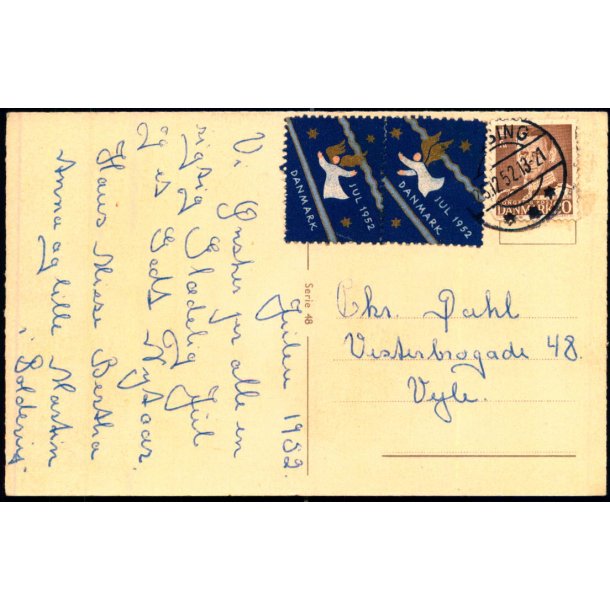 Julen 1952.
Vi Ønsker jer alle en
rigtig Glædelig Jul
og et Godt Nytaar.
Hans Misse Bertha
Anna og lille Martin
i
JUL 1952
DANMARK
JUL 1952
DANMARK
SING
.12.52.19-21
DANMARK 20
Serie 48
Chr. Dahl
Vesterbrogade 48.
Vejle.